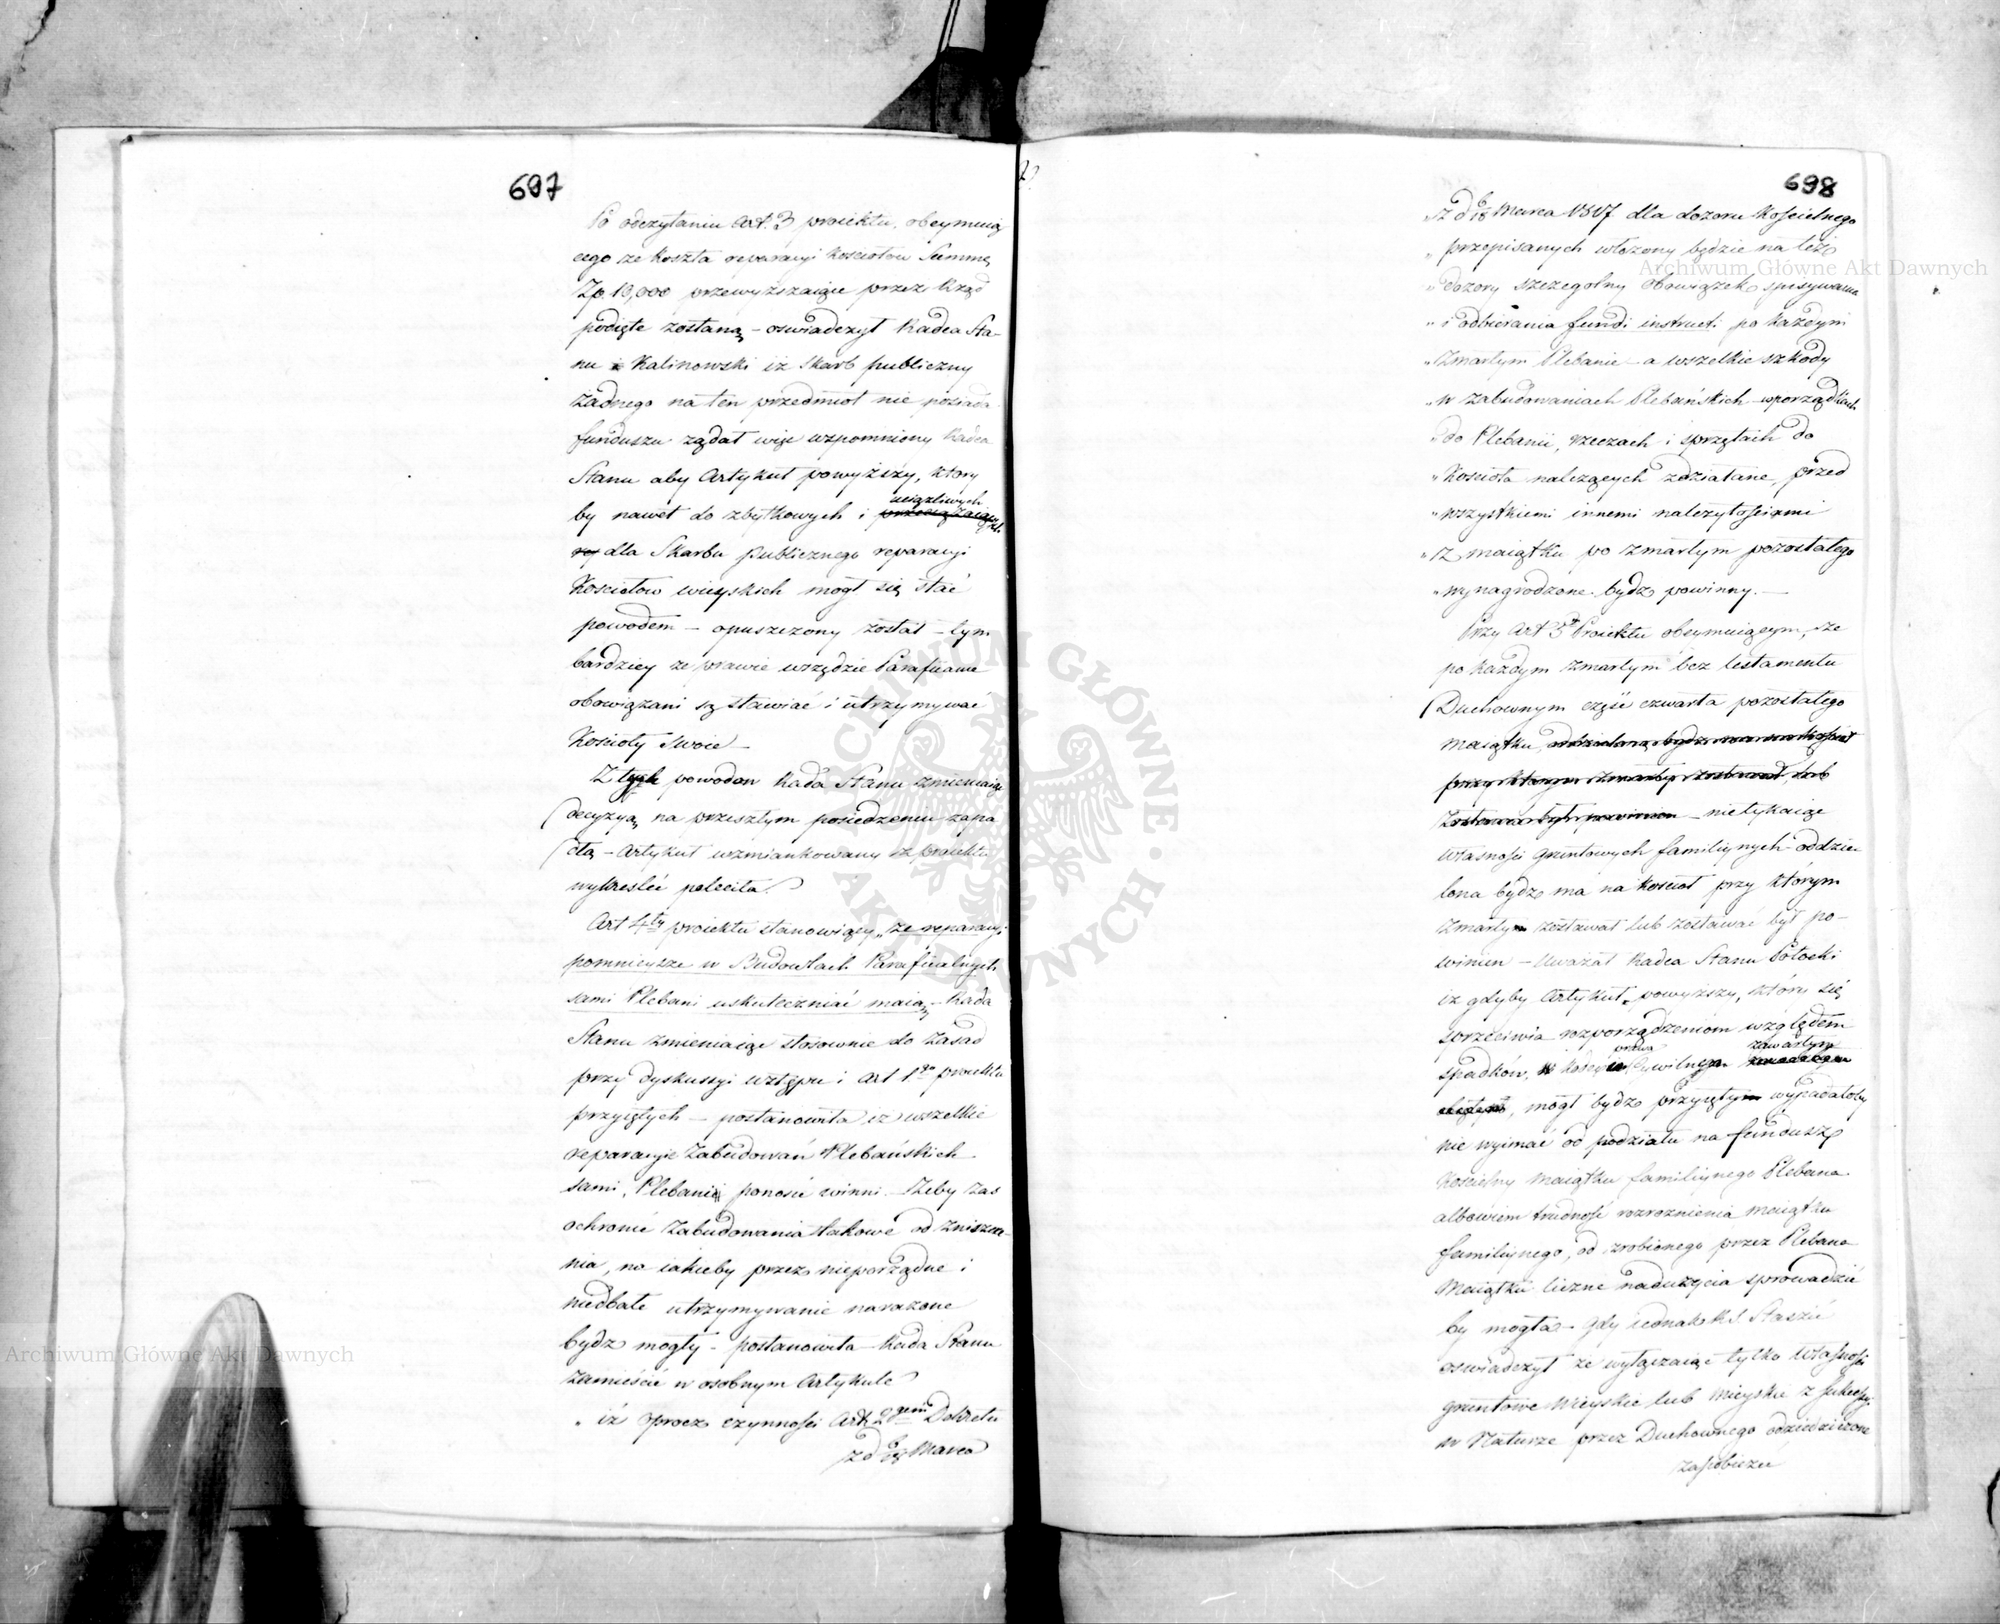 697
Po odczytaniu Art. 3 proiektu, obeymuią
cego że koszta reparacyi kościołow Summę
Zp. 10,000 przewyższaiące przez Rząd
podięte zostaną – oświadczył Radca Sta-
nu Kalinowski iż Skarb publiczny
żadnego na ten przedmiot nie posiada
funduszu żądał więc wzpomniony Radca
Stanu aby Artykuł powyższy, ktory
by nawet do zbytkowych i uciążliwych
dla Skarbu publicznego reparacyi
Kościołow wieyskich mogł się stać
powodem – opuszczony został – tym
bardziey że prawie wszędzie Parafianie
obowiązani są stawiać i utrzymywać
Kościoły swoie –
Z tych powodow Rada Stanu zmieniaiąc
decyzyą na przeszłym posiedzeniu zapa
dłą – Artykuł wzmiankowany z proiektu
wykreślić poleciła.
Art 4ty proiektu stanowiący „że reparacyi
pomnieysze w Budowlach Parafialnych
sami Plebani uskuteczniać maią – Rada
Stanu zmieniaiąc stosownie do zasad
przy dyskussyi wstępu i Art 1go proiektu
przyiętych – postanowiła iż wszelkie
reparacyie Zabudowań Plebańskich
sami Plebani ponosić winni. Żeby zaś
ochronić Zabudowania takowe od zniszcze-
nia, na iakieby przez nieporządne i
niedbałe utrzymywanie narażone
bydz mogły – postanowiła Rada Stanu
zamieścić w osobnym Artykule
„ iż oprocz czynności Art 2gem Dekretu
z d 6/18 Marca
698
„z d 6/18 Marca 1817 dla dozoru Kościelnego
„ przepisanych włożony będzie na też
„ dozory szczegolny obowiązek spisywania
„ i odbierania fundi instructi po każdym
„ zmarłym Plebanie – a wszelkie szkody
„ w zabudowaniach Plebańskich w porządkach
„ do Plebanii, rzeczach i sprzętach do
„ Kościoła należących zdziałane, przed
„ wszystkiemi innemi należytościami
„ z maiątku po zmarłym pozostałego
„ wynagrodzone bydz powinny. –
Przy Art 5 Proiektu obeymuiącym, że
po każdym zmarłym bez testamentu
Duchownym część czwarta pozostałego
maiątku
– nietykaiąc
własności gruntowych familiynych oddzie
lona bydz ma na Kościoł przy którym
zmarły zostawał lub zostawać był po-
winien – Uważał Radca Stanu Potocki
iż gdyby Artykuł powyższy, który się
sprzeciwia rozporządzeniom względem
spadków, prawa Cywilnego zawartym
mogł bydz przyięty wypadałoby
nie wyimać od podziału na fundusz
Kościelny maiątku familiynego Plebana
albowiem trudność rozroznienia maiątku
familiynego, od zrobionego przez Plebana
Maiątku liczne nadużycia sprowadzić
by mogła – gdy iednak R. S. Staszic
oświadczył że wyłączaiąc tylko własności
gruntowe Wieyskie lub Mieyskie z sukcessyi
w Naturze przez Duchownego odziedziczone
zapobieży
Archiwum Główne Akt Dawnych
Archiwum Główne Akt Dawnych
ARCHIWUM GŁÓWNE AKT DAWNYCH